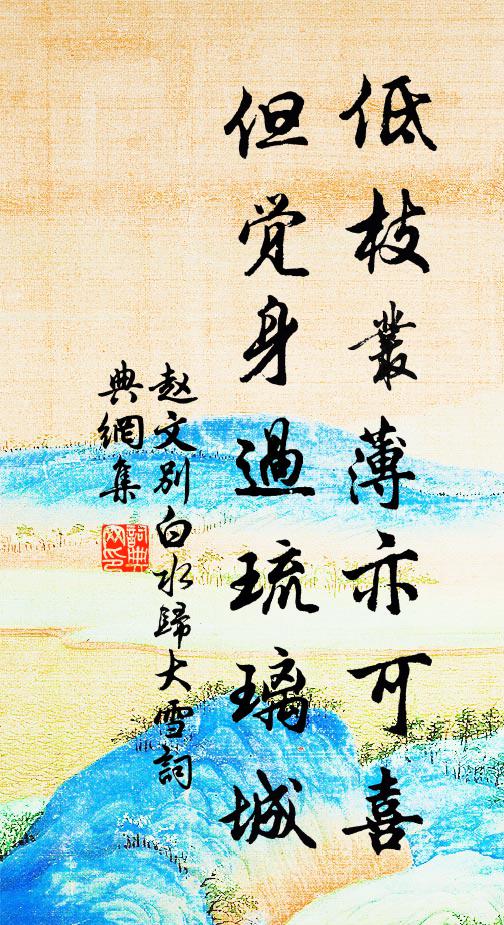 低枝叢薄亦可喜
但觉身過琉璃城
赵文别白水歸大雪詞
典網集